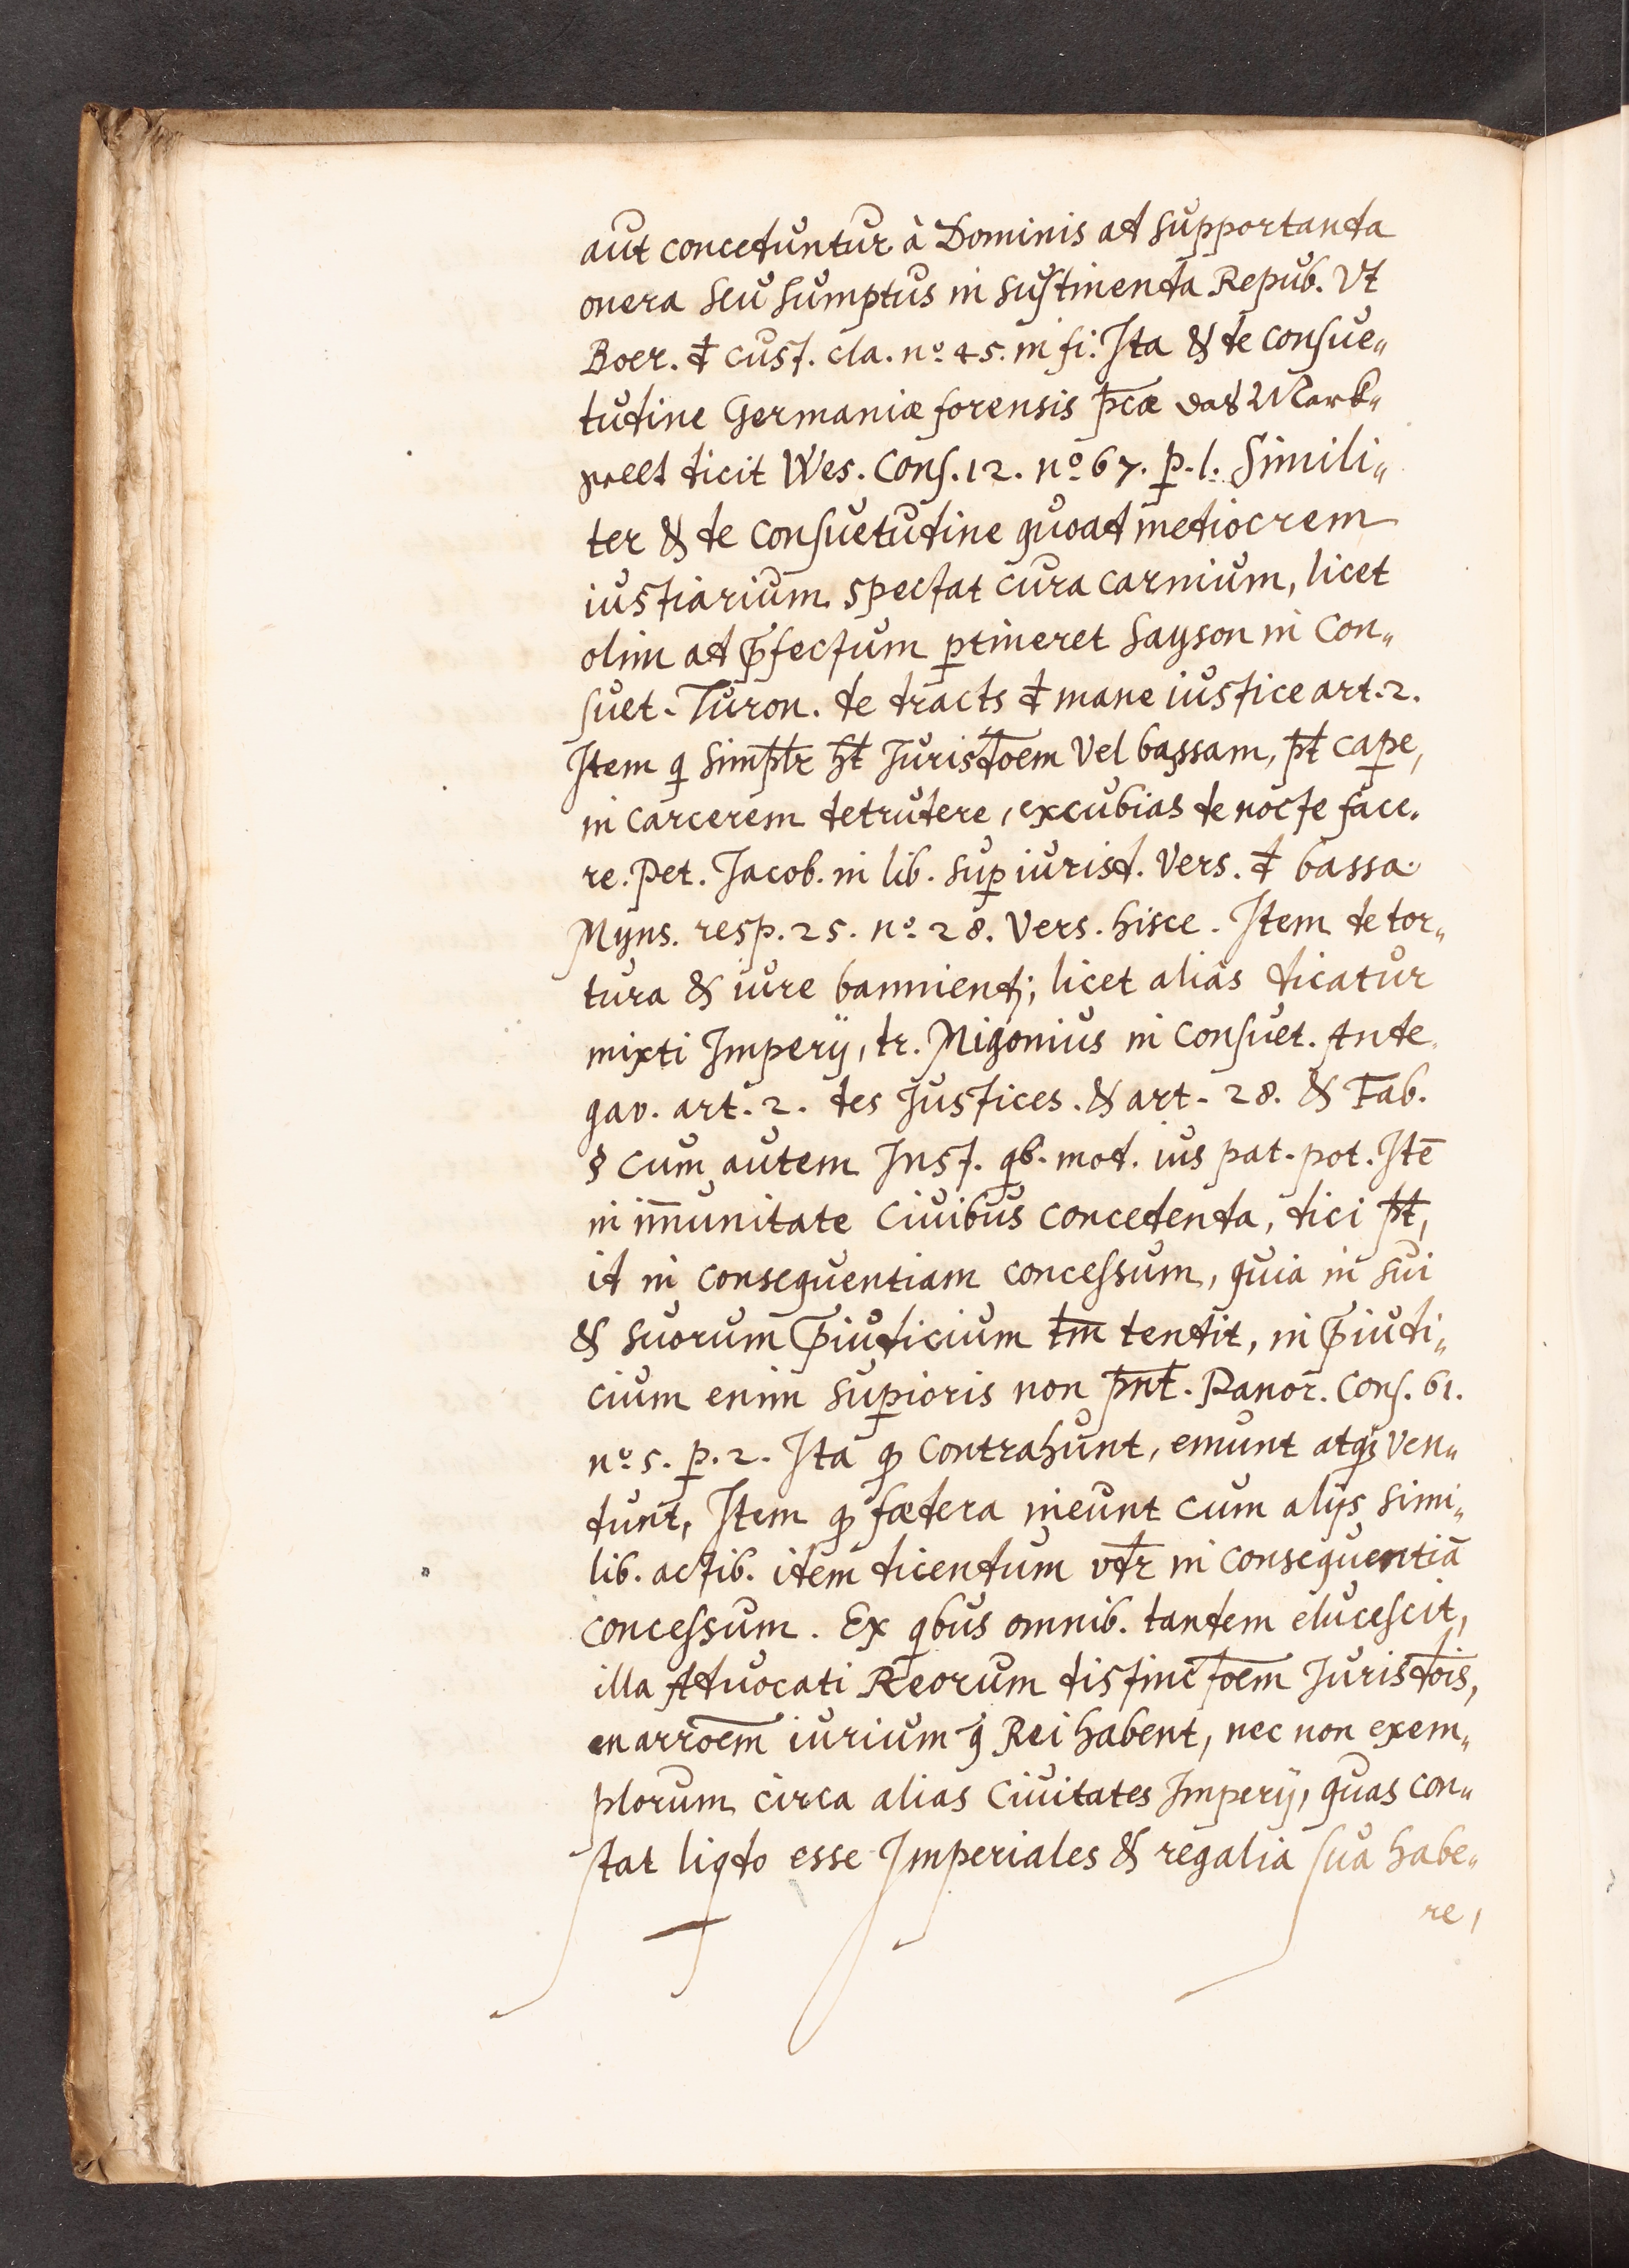 aut conceduntur à Dominis ad supportanda
onera seu sumptus in sustinenda Repub. Vt
Boer. đ cust. cla. nº 45. in fi. Ita & de consue„
tudine Germaniæ forensis p̄cæ das Mark„
recht dicit Wes. Cons. 12. nº 67. p. 1. Simili„
ter & de consuetudine quoad mediocrem
iustiarium spectat cura carnium, licet
olim ad p̄fectum ꝑtineret Sayson in Con„
suet. Turon. de dracts đ mane iustice art. 2.
Item q simpłr ht̄ Jurisd̄oem Vel bassam, pt̄ cape,
in carcerem detrudere, excubias de nocte face.
re. Pet. Jacob. in lib. suꝑ iurisd. Vers. đ bassa.
Myns. resp. 25. nº 28. Vers. hisce. Item de tor„
tura & iure banniendj; licet alias dicatur
mixti Imperij, tr. Migonius in Consuet. Ande
gav. art. 2. des Justices. & art. 28. & Fab.
§ cum autem Inst. qb. mod. ius pat. pot. Itē
in im̄unitate Ciuibus concedenda, dici pt̄,
id in consequentiam concessum, quia in sui
& suorum p̄iudicium tm̄ tendit, in p̄iudi„
cium enim suꝑioris non pn̄t. Panor. Cons. 61.
nº 5. p. 2. Ita ꝙ contrahunt, emunt atqꝫ ven„
dunt, Item ꝙ fœdera ineunt cum alijs simi„
lib. actib. idem dicendum vdr̄ in consequentiā
concessum. Ex qbus omnib. tandem elucescit,
illa Aduocati Reorum distinct̄oem Jurisd̄ois,
enarrōem iurium q̄ Rei habent, nec non exem„
plorum circa alias Ciuitates Imperij, quas con„
stat liqdo esse Imperiales & regalia sua habe„
re,